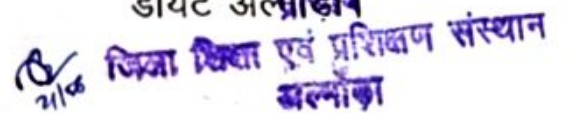 डायट अल्मोड़ा
जिला शिक्षा एवं प्रशिक्षण संस्थान
अल्मोड़ा